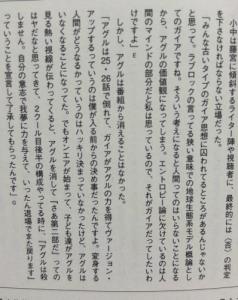 小中は藤宮に傾斜するライター陣や視聴者に、最終的には〈否〉の判定
を下さなければならない立場だった。
「みんな古いタイプのガイア思想に囚われてるところがあるんじゃないか
と思って。ラブロックの言ってる狭い意味での地球生態系モデル概論とし
てのガイアですね。そういう考えになると人間ってのはいらないことに
から、アグルの価値観になってしまう。エントロピー論に欠けているのは人
間のマインドの部分だと私は思っているので、それがガイアだってしたいわ
けですよ」E
しかし、アグルは番組から消えることはなかった。
「アグルは25・26話で倒れて、ガイアがアグルの力を得てヴァージョン・
アップするっていうのは僕が入る前からの決め事だったんですよ。変身する
人間がどうなるかっていうのはハッキリ決まっていなかったけど、アグルは
いなくなることになってた。でもオンエアが始まって、子ども達がアグルを
見る熱い視線が伝わってくると、アグルを消して『さあ第二部だ』っての
はヤだなと思ってきて、2クール目後半の構成やってる時に、『アグルは殺
しません。自分の意志で我夢に力を与えて、いったん退場でまた戻ります』
っていうことを宣言して了承してもらったんです」G